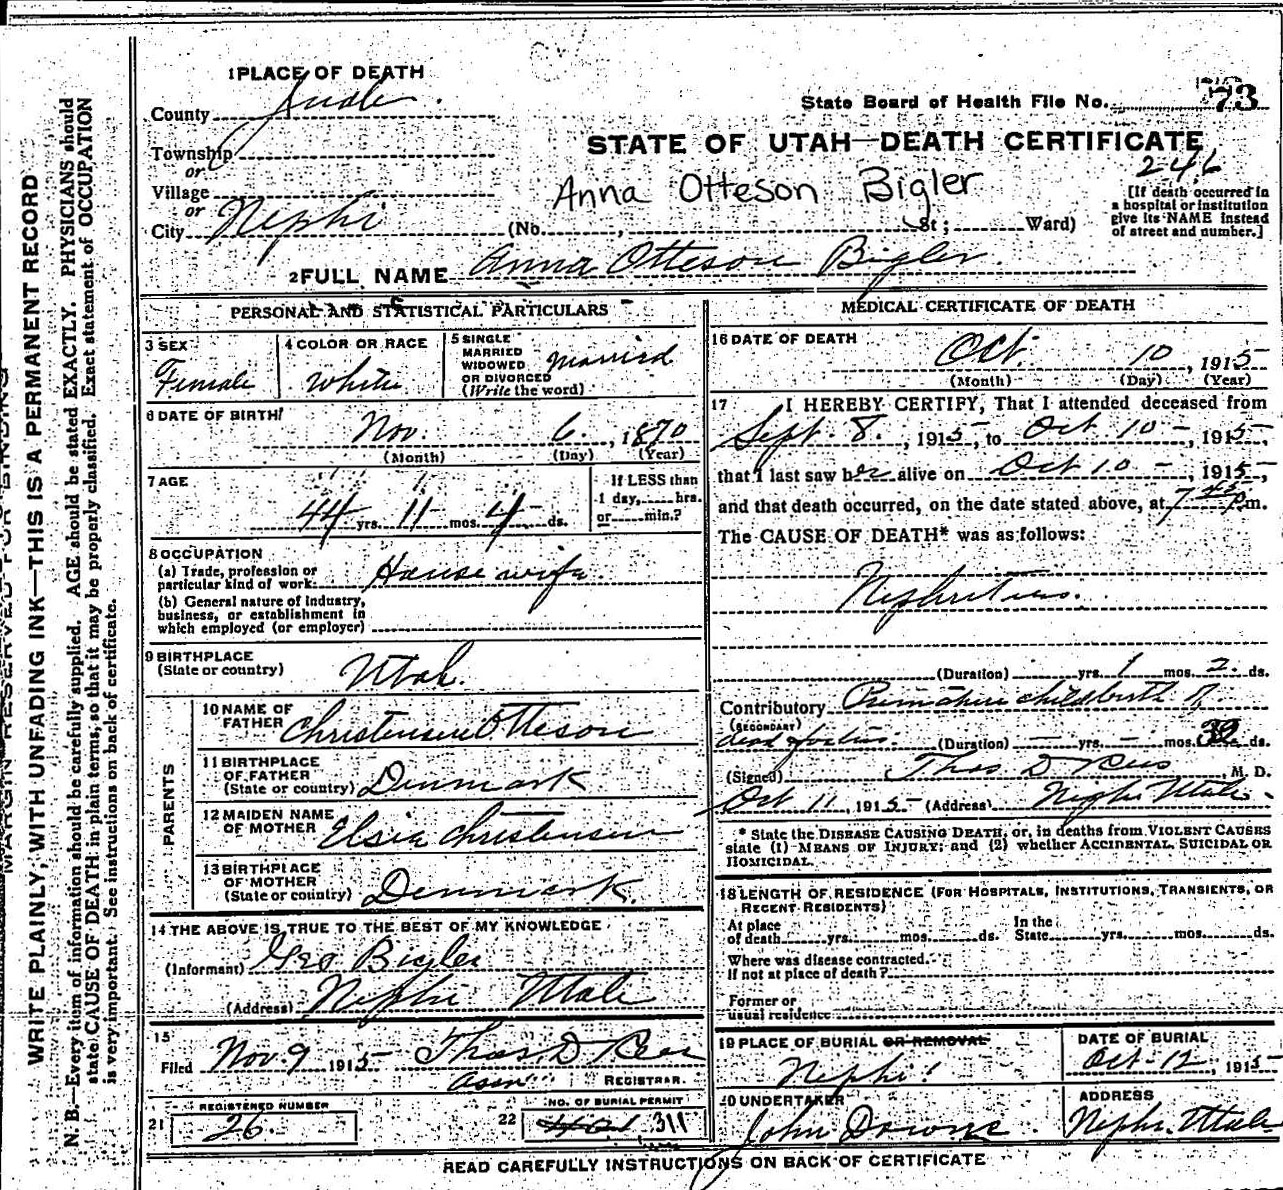 1 PLACE OF DEATH
County Juab.
Township
or
Village
or
City Nephi
(No. , St; Ward)
State Board of Health File No. 73
STATE OF UTAH—DEATH CERTIFICATE
246
Anna Otteson Bigler
[If death occurred in
a hospital or institution
give its NAME instead
of street and number.]
2 FULL NAME Anna Otteson Bigler.
PERSONAL AND STATISTICAL PARTICULARS
3 SEX
Female
4 COLOR OR RACE
White
5 SINGLE
MARRIED
WIDOWED
OR DIVORCED
(Write the word)
Married
6 DATE OF BIRTH
Nov. 6, 1870
(Month) (Day) (Year)
7 AGE
44 yrs. 11 mos. 4 ds.
If LESS than
1 day, hrs.
or min.?
8 OCCUPATION
(a) Trade, profession or
particular kind of work. House wife.
(b) General nature of industry,
business, or establishment in
which employed (or employer)
9 BIRTHPLACE
(State or country) Utah.
PARENTS
10 NAME OF
FATHER Otteson
11 BIRTHPLACE
OF FATHER
(State or country) Denmark
12 MAIDEN NAME
OF MOTHER Elsie Christensen
13 BIRTHPLACE
OF MOTHER
(State or country) Denmark.
14 THE ABOVE IS TRUE TO THE BEST OF MY KNOWLEDGE
(Informant) Geo Bigler
(Address) Nephi Utah
15
Filed Nov 9 1915 Thos. D Rees
Assn REGISTRAR.
21 REGISTERED NUMBER
26.
22 NO. OF BURIAL PERMIT
311
MEDICAL CERTIFICATE OF DEATH
16 DATE OF DEATH
Oct. 10, 1915
(Month) (Day) (Year)
17 I HEREBY CERTIFY, That I attended deceased from
Sept. 8., 1915, to Oct 10, 1915,
that I last saw her alive on Oct 10, 1915,
and that death occurred, on the date stated above, at 7 45 p.m.
The CAUSE OF DEATH* was as follows:
Nephritis.
(Duration) yrs. 1 mos. 2 ds.
Contributory Premature childbirth
(SECONDARY)
dead foetus. (Duration) — yrs. — mos. ds.
(Signed) Thos D Rees M. D.
Oct 11, 1915 (Address) Nephi Utah.
* State the DISEASE CAUSING DEATH, or, in deaths from VIOLENT CAUSES
state (1) MEANS OF INJURY; and (2) whether ACCIDENTAL, SUICIDAL OR
HOMICIDAL.
18 LENGTH OF RESIDENCE (FOR HOSPITALS, INSTITUTIONS, TRANSIENTS, OR
RECENT RESIDENTS)
At place
of death yrs. mos. ds.
In the
State yrs. mos. ds.
Where was disease contracted.
If not at place of death?
Former or
usual residence
19 PLACE OF BURIAL OR REMOVAL
Nephi
DATE OF BURIAL
Oct-12, 1915
20 UNDERTAKER
John Downs.
ADDRESS
Nephi, Utah
READ CAREFULLY INSTRUCTIONS ON BACK OF CERTIFICATE
MARGIN RESERVED FOR BINDING
WRITE PLAINLY, WITH UNFADING INK—THIS IS A PERMANENT RECORD
N. B.—Every item of information should be carefully supplied. AGE should be stated EXACTLY. PHYSICIANS should
state CAUSE OF DEATH in plain terms, so that it may be properly classified. Exact statement of OCCUPATION
is very important. See instructions on back of certificate.